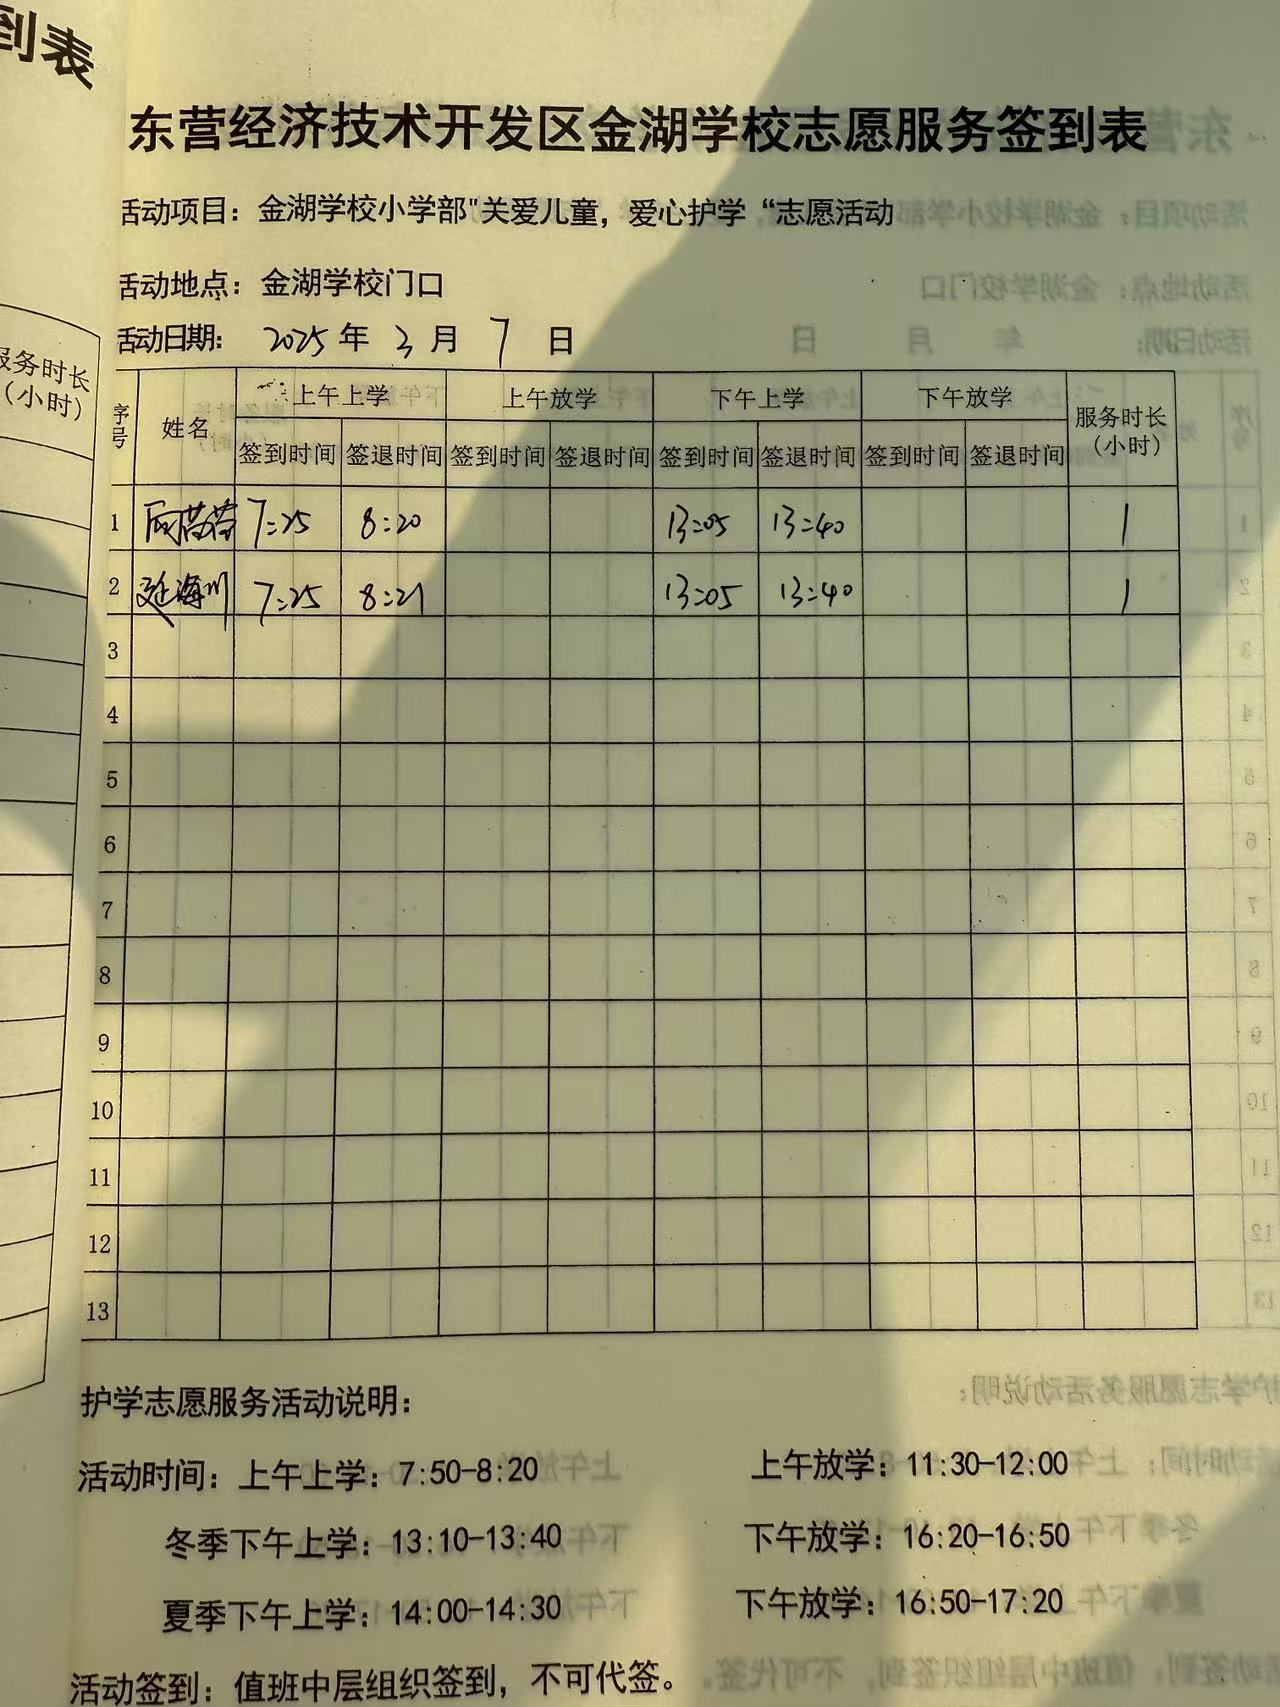 到表
东营经济技术开发区金湖学校志愿服务签到表
活动项目：金湖学校小学部"关爱儿童，爱心护学“志愿活动
活动地点：金湖学校门口
活动日期： 2025 年 3 月 7 日
服务时长
（小时）
序号 姓名 上午上学 上午放学 下午上学 下午放学 服务时长（小时）
签到时间 签退时间 签到时间 签退时间 签到时间 签退时间 签到时间 签退时间
1 7:25 8:20 13:05 13:40 1
2 延海川 7:25 8:21 13:05 13:40 1
3
4
5
6
7
8
9
10
11
12
13
护学志愿服务活动说明：
活动时间：上午上学：7:50-8:20 上午放学：11:30-12:00
冬季下午上学：13:10-13:40 下午放学：16:20-16:50
夏季下午上学：14:00-14:30 下午放学：16:50-17:20
活动签到：值班中层组织签到，不可代签。